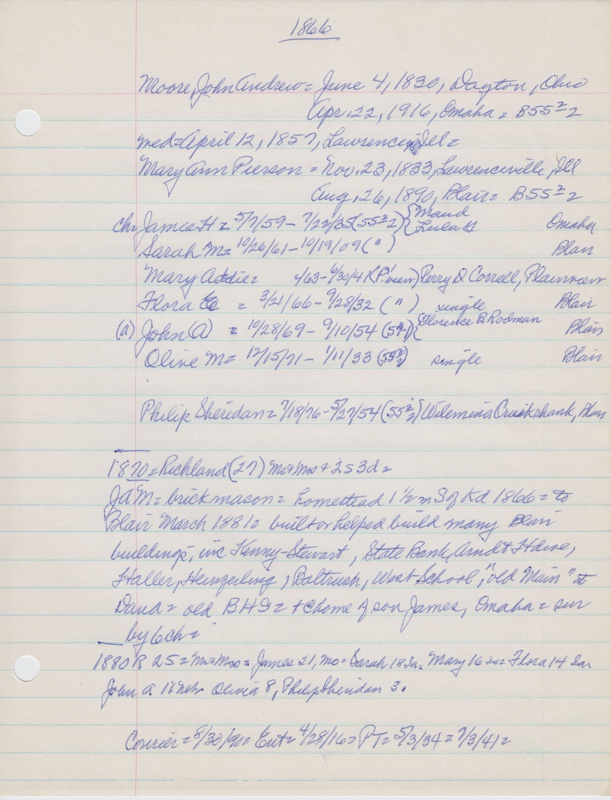 1866
Moore, John Andrew = June 4, 1830, Dayton, Ohio
Apr. 22, 1916, Omaha = B55 2/2
med = April 12, 1857, Lawrencev Ill =
Mary Ann Pierson = Nov. 23, 1833, Lawrenceville, Ill
Aug. 26, 1890, Blair = B55 2/2
Chi James H = 5/7/59 - 7/23/35 (55 2/2) { Maud Omaha
Lulu
Sarah M = 10/26/61 - 10/19/09 (") Blair
Mary Addie = 4/63 - 6/30/4 Perry D Correll, Plainview
Flora = 3/21/66 - 9/28/32 (") single Blair
(a) John A = 10/28/69 - 9/10/54 { Florence B. Rodman Blair
Olive M = 12/15/71 - 1/11/33 (55 2/2) single Blair
Philip Sheridan = 7/18/76 - 5/27/54 (55 2/2) Wilemina Cruickshank, Blair
1870 = Richland (27) Mr & Mrs + 2s 3d =
JAM = brickmason = homestead 1 1/2 m S of Kd 1866 = to
Blair March 1881 = built or helped build many Blair
buildings, inc Kenny-Stewart, State Bank, Arndt Hdwe,
Haller, Heinzerling, Paltrush, West School, "old Main" at
Dana = old BHS = + home of son James, Omaha = sur
by 6 ch =
1880 R 25 = Mr Mrs = James 21, Mo = Sarah 18 = Mary 16 = Flora 14
John A Olivia 8, Philip Sheridan 3.
Courier = 8/30/90 = Ent = 4/28/16 = PT = 5/3/34 = 7/3/41 =